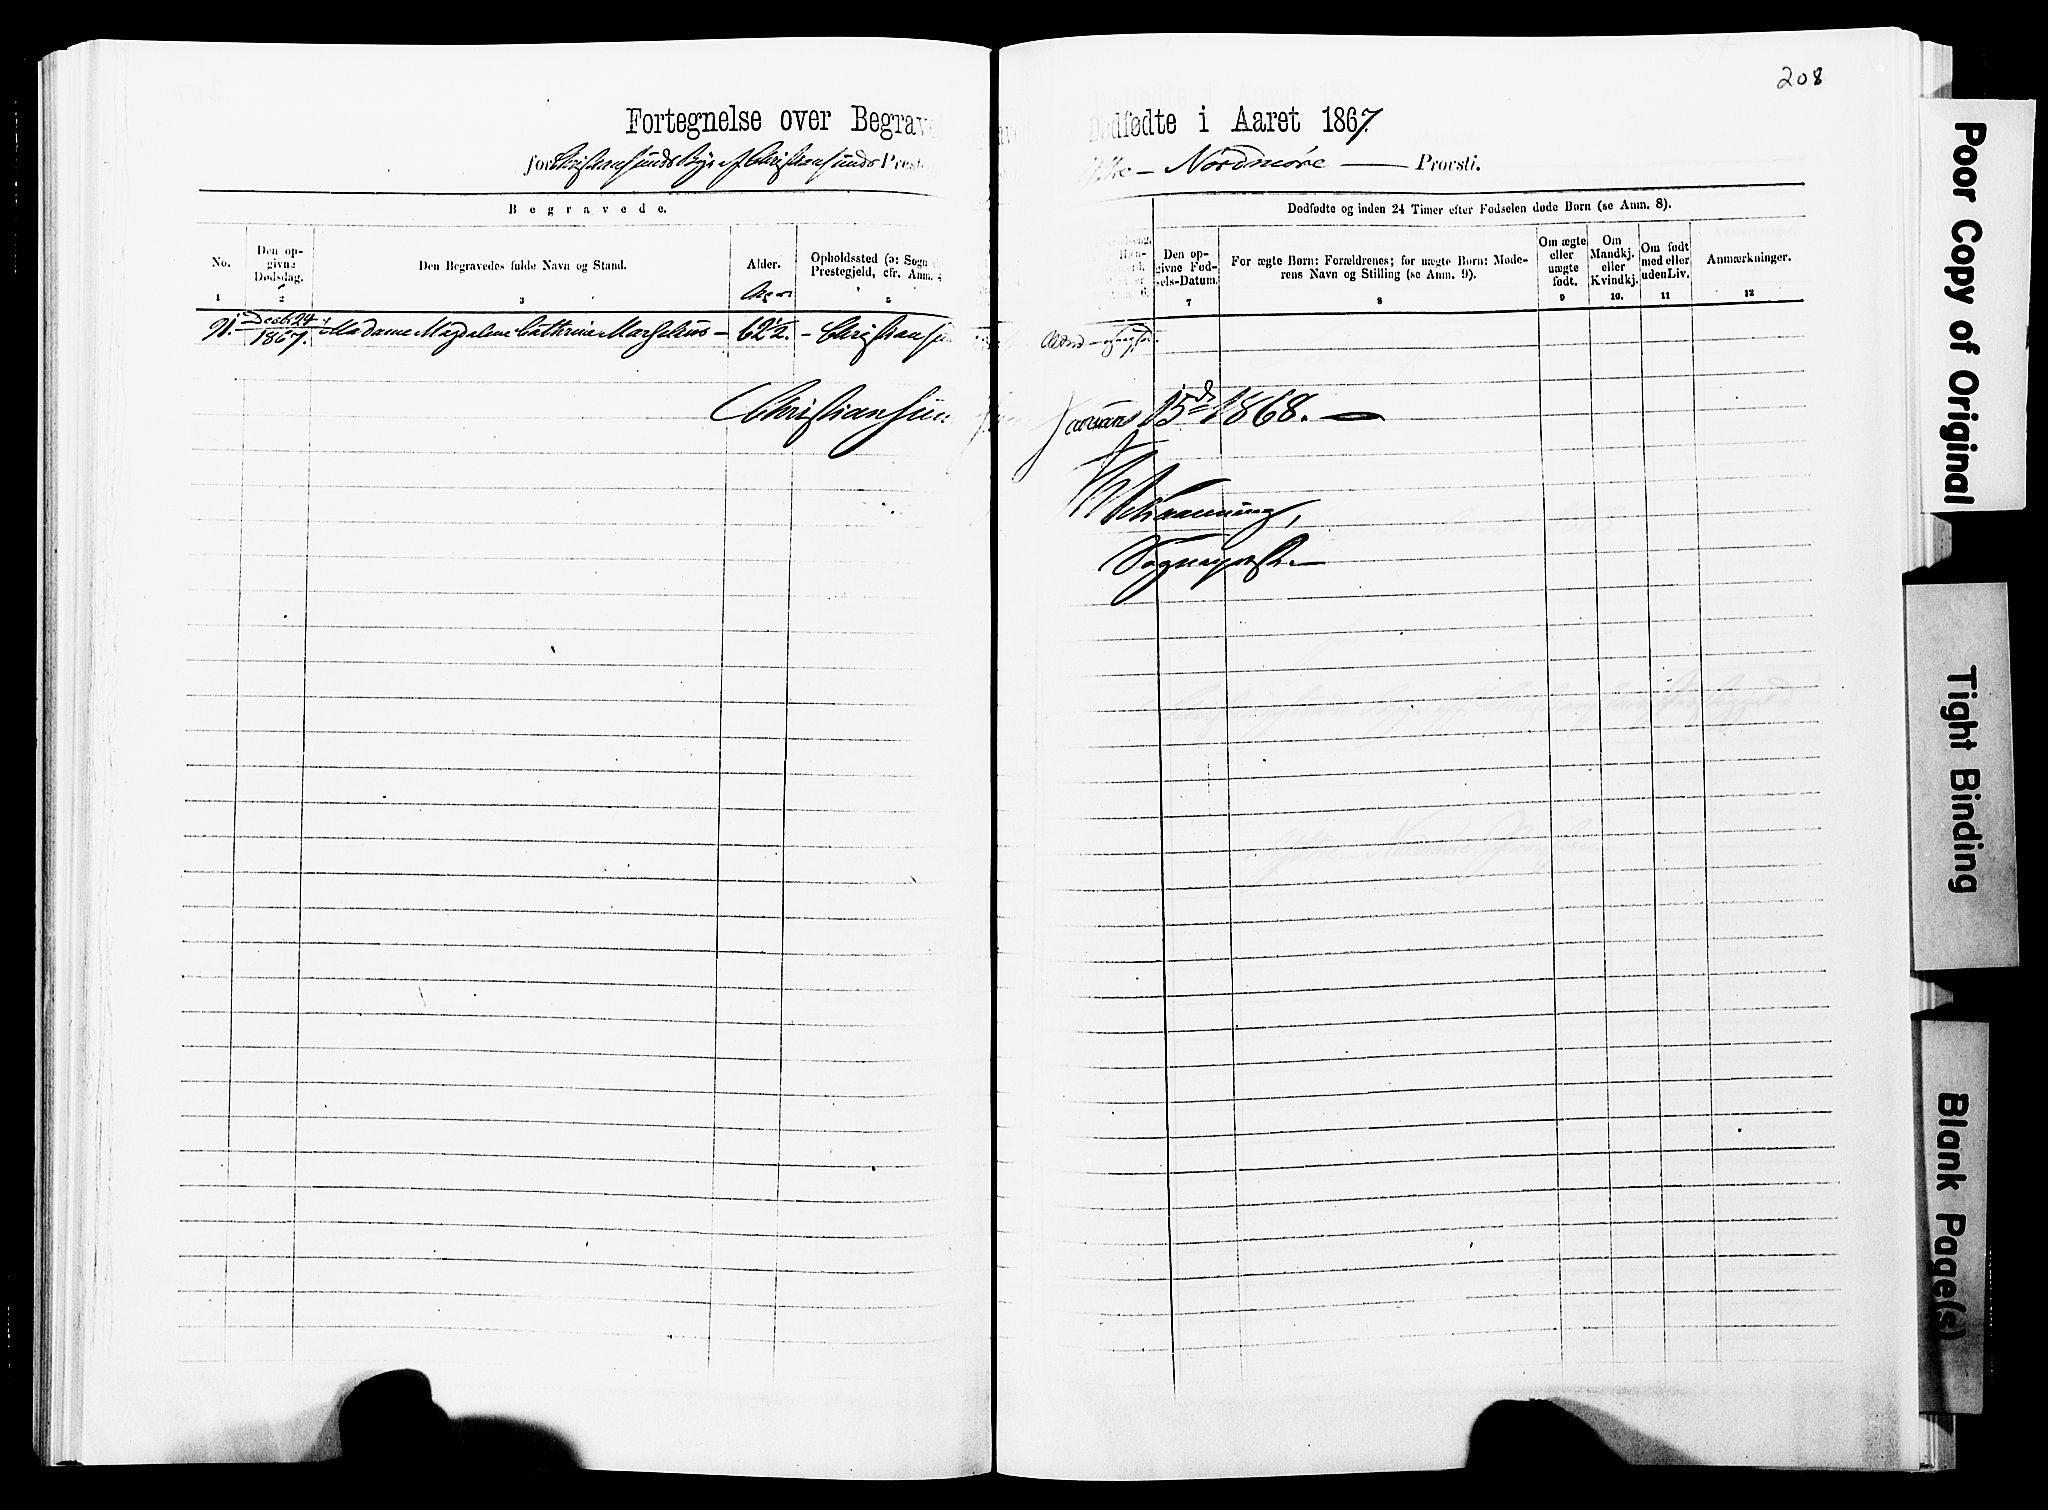 208
Fortegnelse over Begrave
Dødfødte i Aaret 1867
for Christiansunds Bye af Christiansunds Prest
Nordmøre — Provsti.
Begravede.
Dødfødte og inden 24 Timer efter Fødselen døde Børn (se Anm. 8).
No.
Den op-
givne
Dødsdag.
Den Begravedes fulde Navn og Stand.
Alder.
Opholdssted (ɔ: Sogn
Prestegjeld, cfr. Anm. 4
Den op-
givne Fød-
sels-Datum.
For ægte Børn: Forældrenes; for uægte Børn: Mode-
rens Navn og Stilling (se Anm. 9).
Om ægte
eller
uægte
født.
Om
Mandkj.
eller
Kvindkj.
Om født
med eller
uden Liv.
Anmærkninger.
1 2 3 5
7 8 9 10. 11 12
Decb. 24
1867. Madame Magdalene Cathrine - 62½. - Christiansu
Christiansun
Januar 15d 1868. —
Sogneprest. —
Poor Copy of Original
Tight Binding
Blank Page(s)